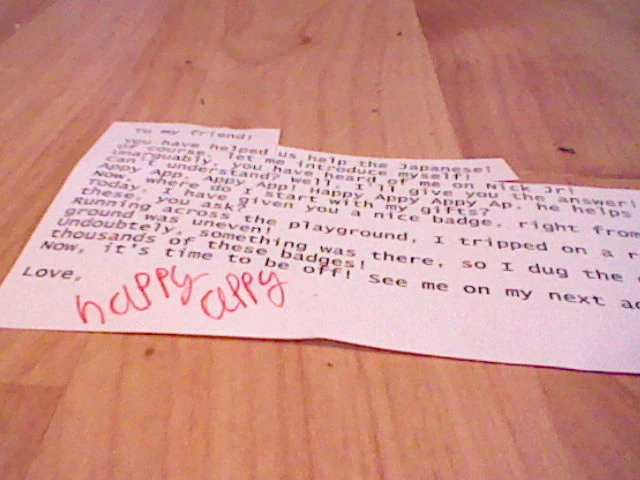 To my friend:
You have helped us help the Japanese!
Of course, let me introduce myself!
Unarguably, you have heard of me on Nick Jr!
Can't understand? Well, I'll give you the answer!
Appy App, Appy App! Happy Appy Appy Ap, he helps
Now, where do I start with my gifts?
Today, I have given you a nice badge, right from
these, you ask?
Running across the playground, I tripped on a
ground was uneven!
Undoubtely, something was there, so I dug the
thousands of these badges!
Now, it's time to be off! See me on my next
Love,
happy appy